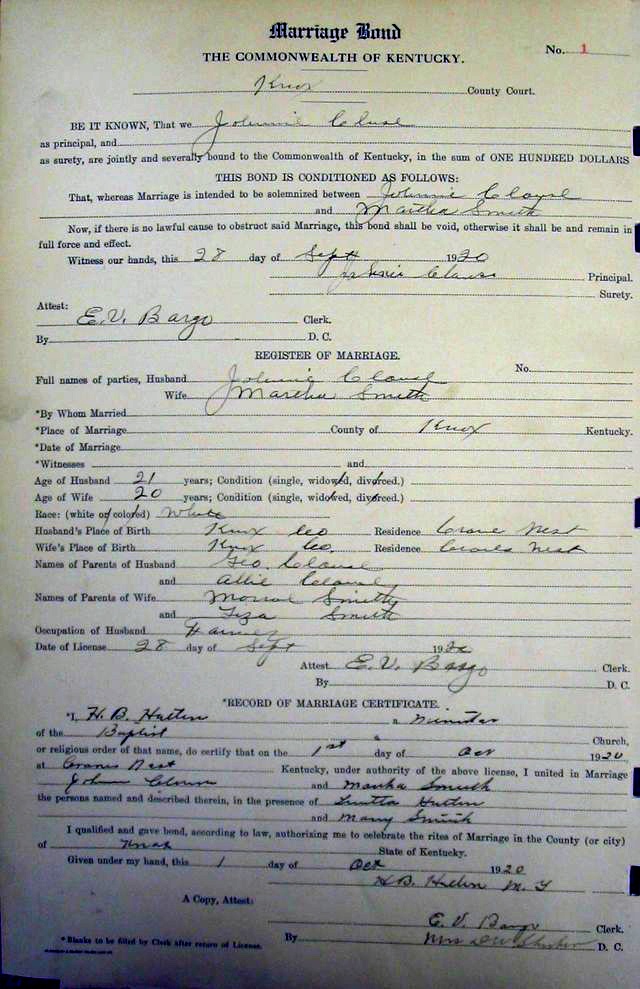 Marriage Bond
THE COMMONWEALTH OF KENTUCKY. No. 1
Knox County Court.
BE IT KNOWN, That we Johnnie
as principal, and
as surety, are jointly and severally bound to the Commonwealth of Kentucky, in the sum of ONE HUNDRED DOLLARS
THIS BOND IS CONDITIONED AS FOLLOWS:
That, whereas Marriage is intended to be solemnized between Johnnie Clouse
and Martha Smith
Now, if there is no lawful cause to obstruct said Marriage, this bond shall be void, otherwise it shall be and remain in
full force and effect.
Witness our hands, this 28 day of Sept 1920
Principal.
Surety.
Attest:
E.V. Bargo Clerk.
By D. C.
REGISTER OF MARRIAGE.
No.
Full names of parties, Husband Johnnie Clouse
Wife Martha Smith
*By Whom Married
*Place of Marriage County of Knox Kentucky.
*Date of Marriage
*Witnesses and
Age of Husband 21 years; Condition (single, widowed, divorced.)
Age of Wife 20 years; Condition (single, widowed, divorced.)
Race: (white or colored) White
Husband's Place of Birth Knox Co Residence Nest
Wife's Place of Birth Knox Co. Residence Nest
Names of Parents of Husband Geo. Clouse
and Allie Clouse
Names of Parents of Wife Smith
and Smith
Occupation of Husband
Date of License 28 day of Sept 1920
Attest E.V. Bargo Clerk.
By D. C.
*RECORD OF MARRIAGE CERTIFICATE.
*I, H. B. a
of the Baptist Church,
or religious order of that name, do certify that on the 1st day of Oct 1920
at Nest Kentucky, under authority of the above license, I united in Marriage
and Smith
the persons named and described therein, in the presence of
and Mary Smith
I qualified and gave bond, according to law, authorizing me to celebrate the rites of Marriage in the County (or city)
of Knox State of Kentucky.
Given under my hand, this 1 day of Oct 1920
H.B.
A Copy, Attest:
E. V. Bargo Clerk.
By Mrs D. C.
* Blanks to be filled by Clerk after return of License.